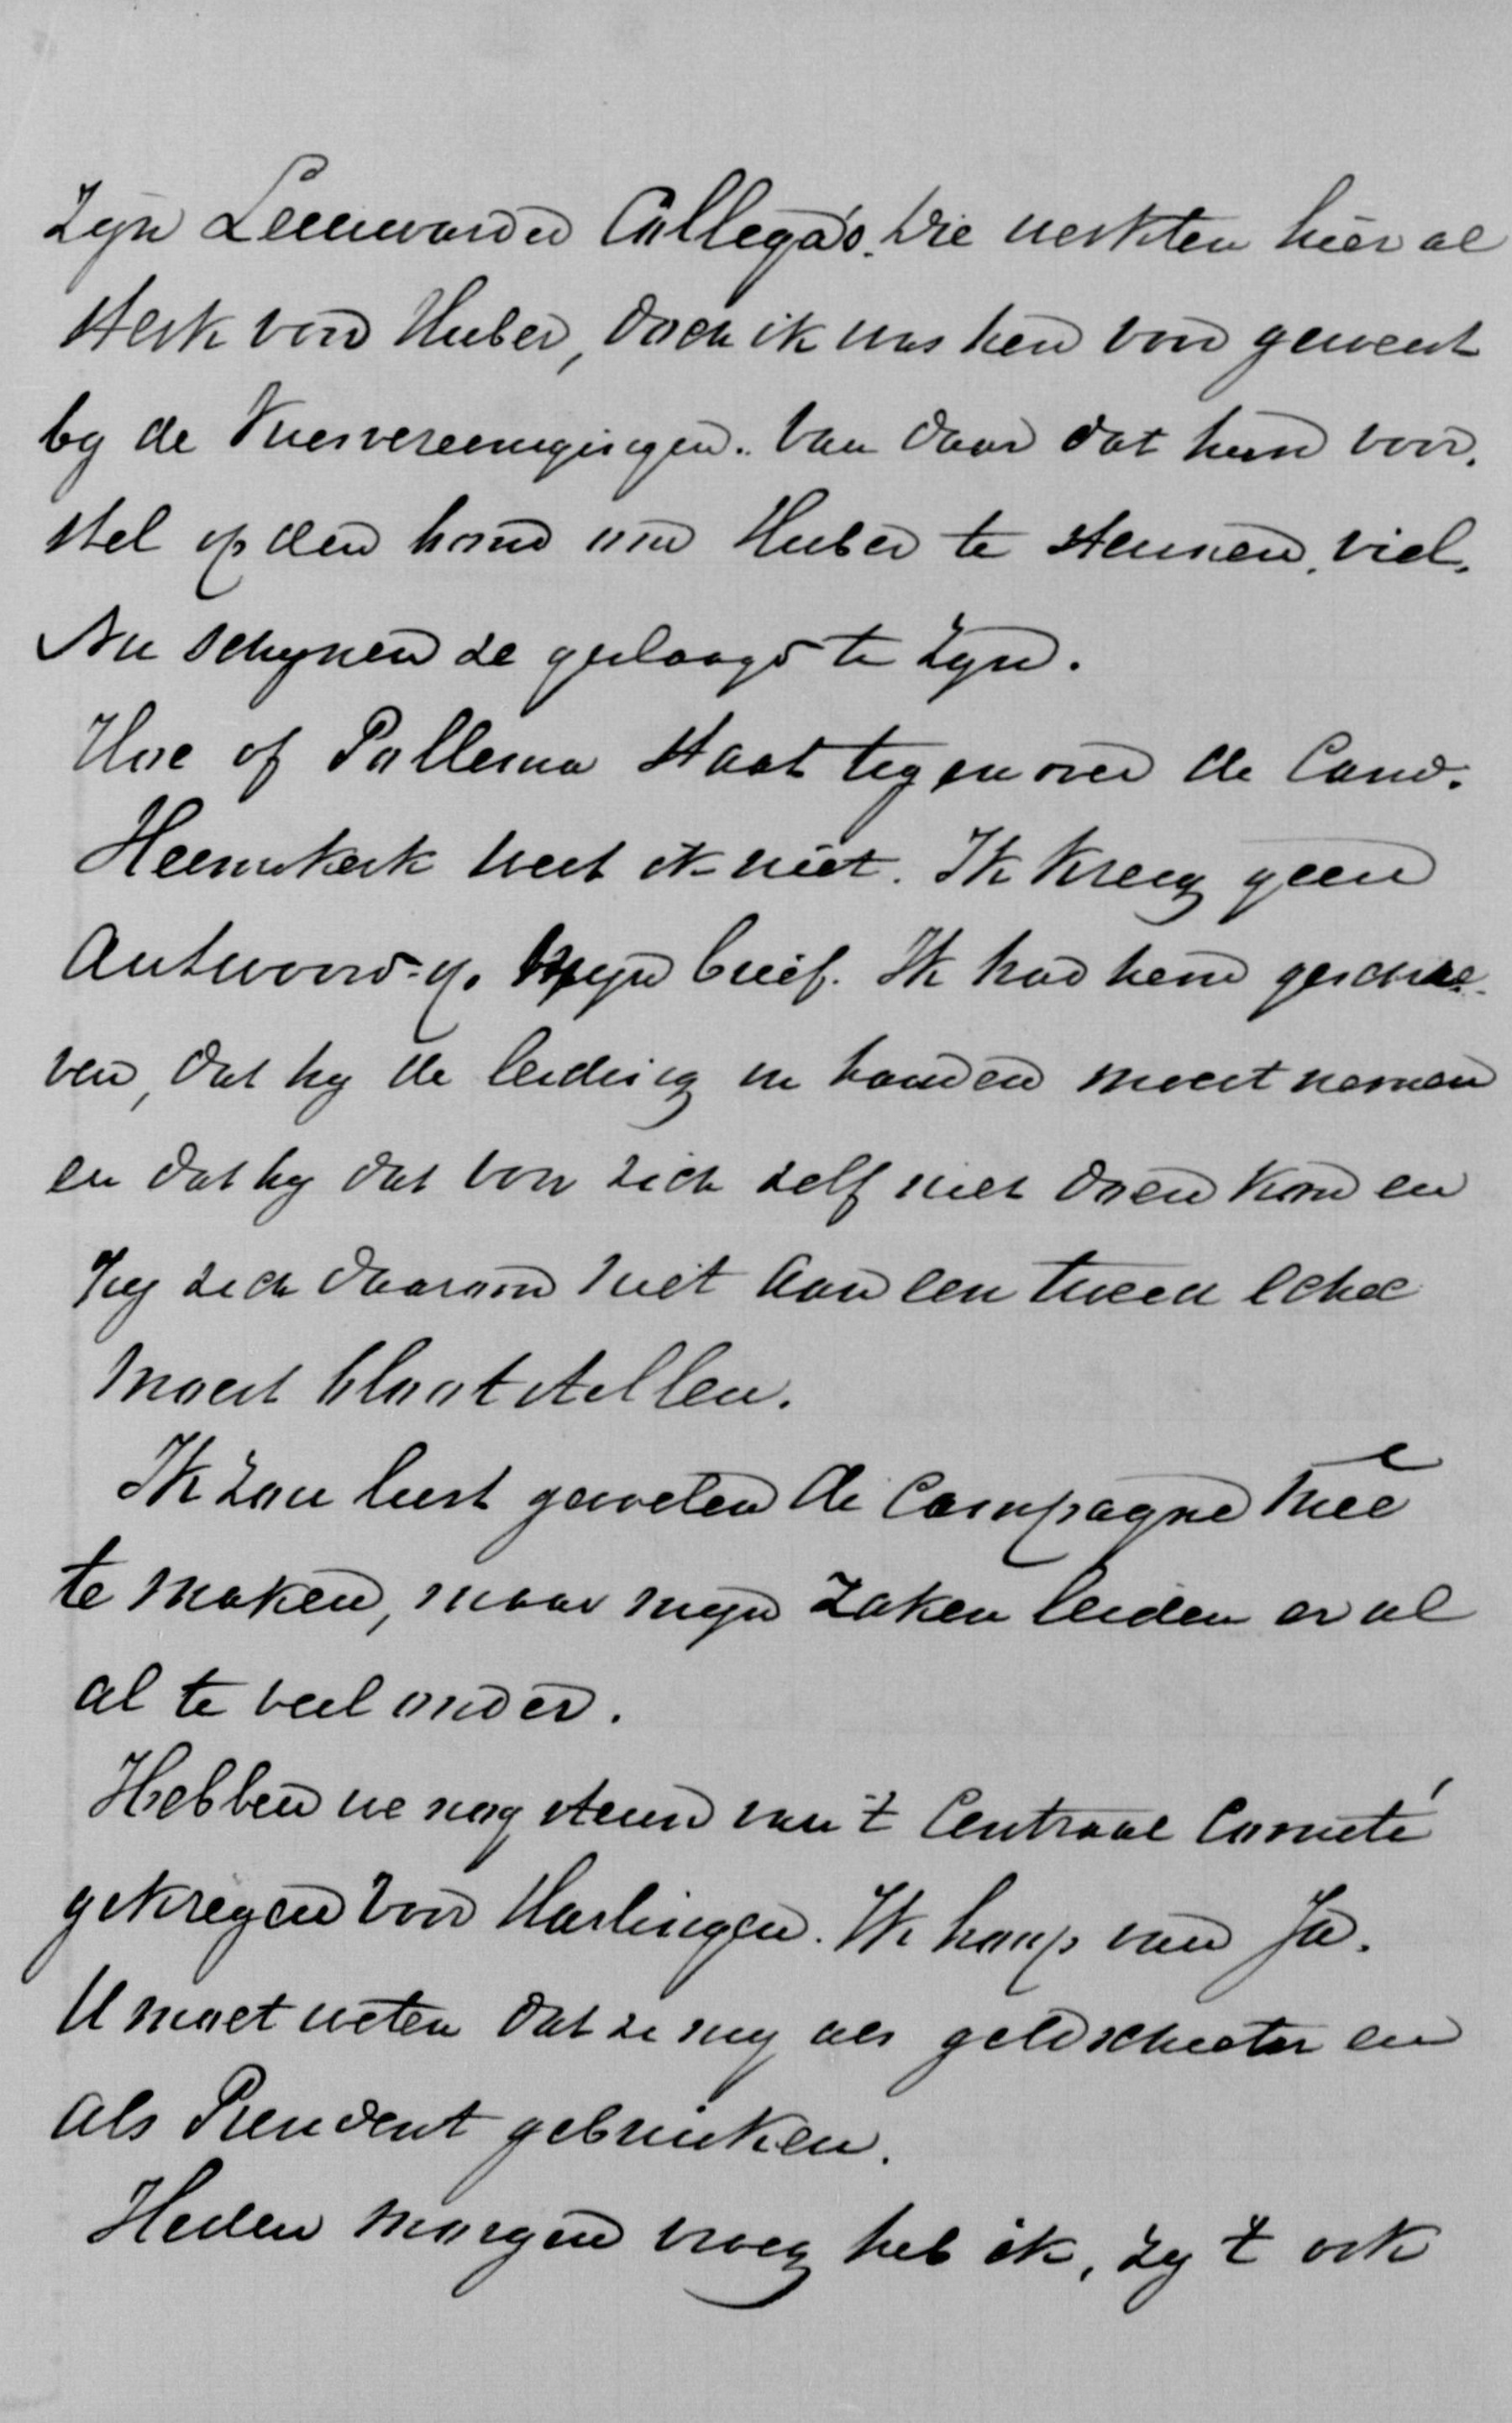 Zijn Leeuwarder Collega's. Die werkten hier al
sterk voor Huber, doch ik was hen voor geweest
by de Kiesvereenigingen. Van daar dat hun voor-
stel op den hond om Huber te steunen, viel.
Nu schynen ze geslaagd te zyn.
Hoe of Pollema staat tegenover de Cand.
Heemskerk weet ik niet. Ik kreeg geen
Antwoord op myn brief. Ik had hem geschre-
ven, dat hy de leiding in handen moest nemen
en dat hy dat voor zich zelf niet doen kon en
hy zich daarom niet aan een tweede echec
moest blootstellen.
Ik zou best gewild de Campagne mee
te maken, maar myn zaken leiden er al
al te veel onder.
Hebben we nog steun van 't Centraal Comité
gekregen voor Harlingen. Ik hoop van Ja.
U moet weten dat ze my als geldschieter en
als President gebruiken.
Heden morgen vroeg heb ik, zy 't ook